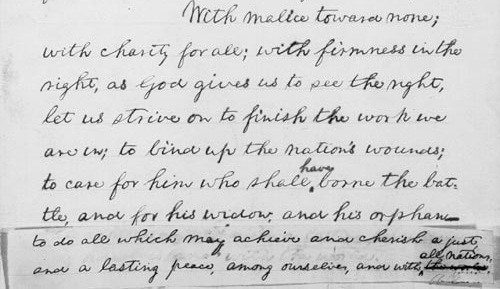 With malice toward none;
with charity for all; with firmness in the
right, as God gives us to see the right,
let us strive on to finish the work we
are in; to bind up the nation's wounds;
to care for him who shall have borne the bat-
tle, and for his widow, and his orphan—
to do all which may achieve and cherish a just,
and a lasting peace, among ourselves, and with all nations. the world